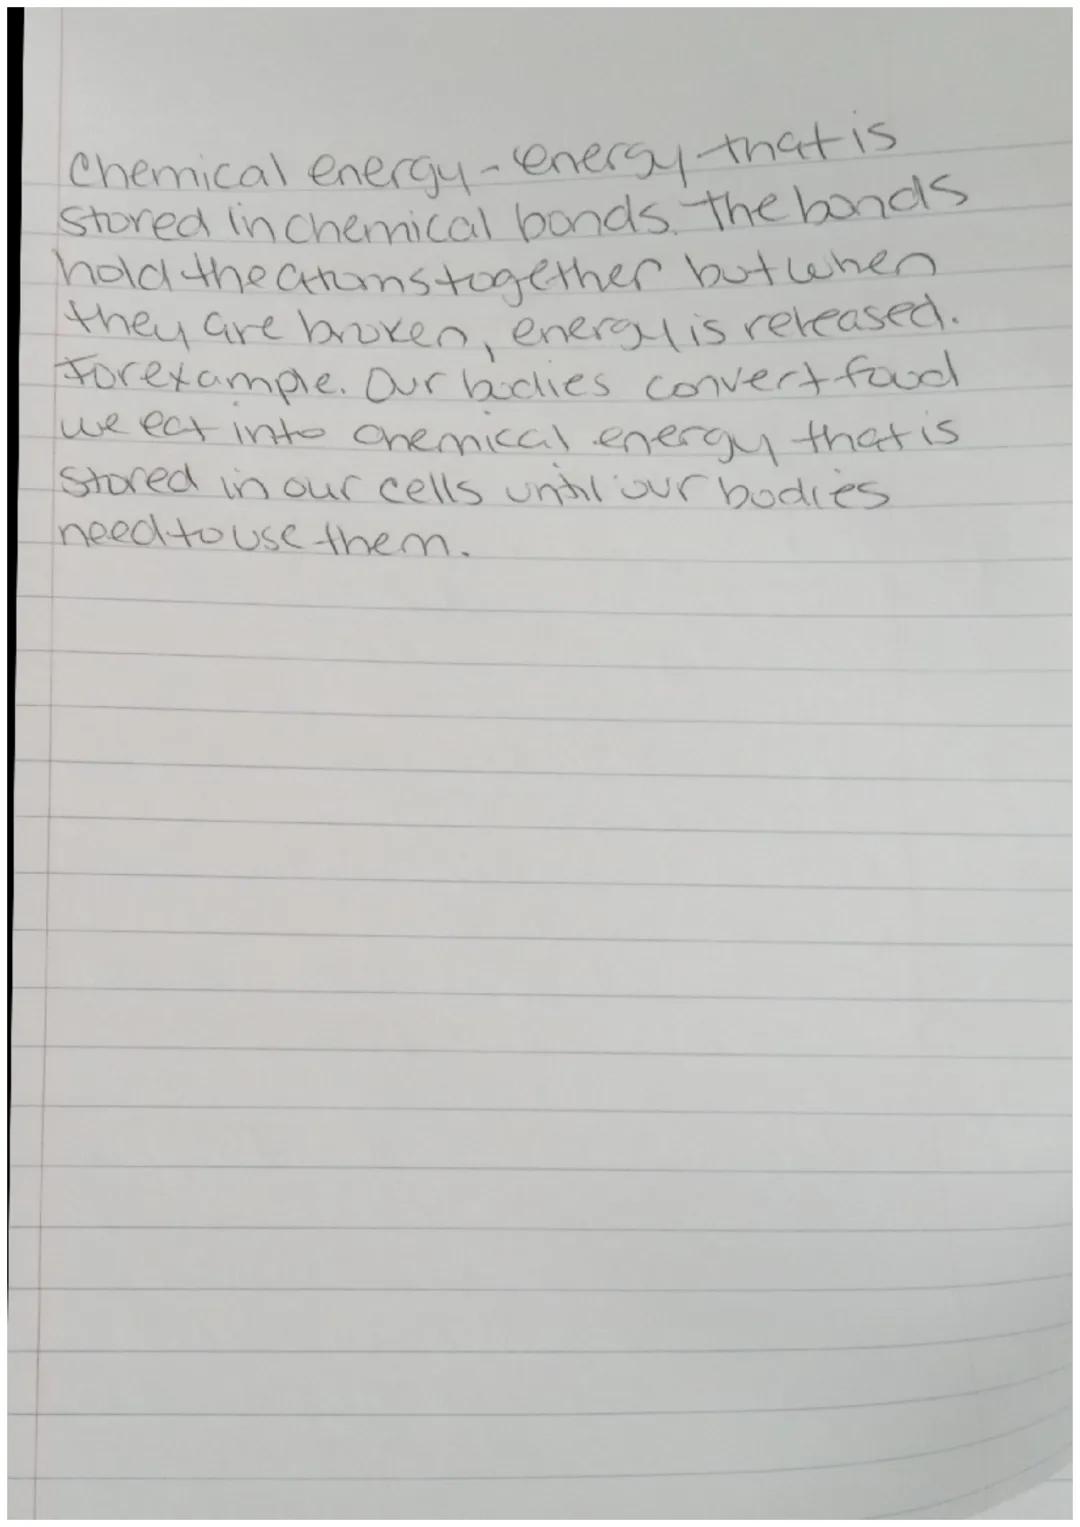 Chemical energy - energy that is
stored in chemical bonds. The bonds
hold the atoms together but when
they are broken, energy is released.
For example. Our bodies convert food
we eat into chemical energy that is
stored in our cells until our bodies
need to use them.